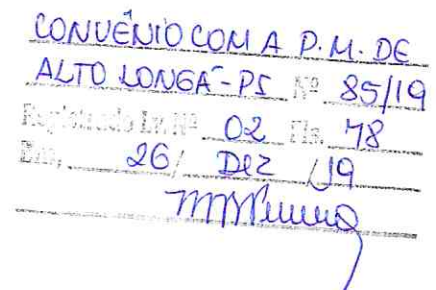 CONVÊNIO COM A P.M. DE
ALTO LONGÁ-PI Nº 85/19
Registrado Lv. Nº 02 Fls. 78
Em, 26/ DEZ /19